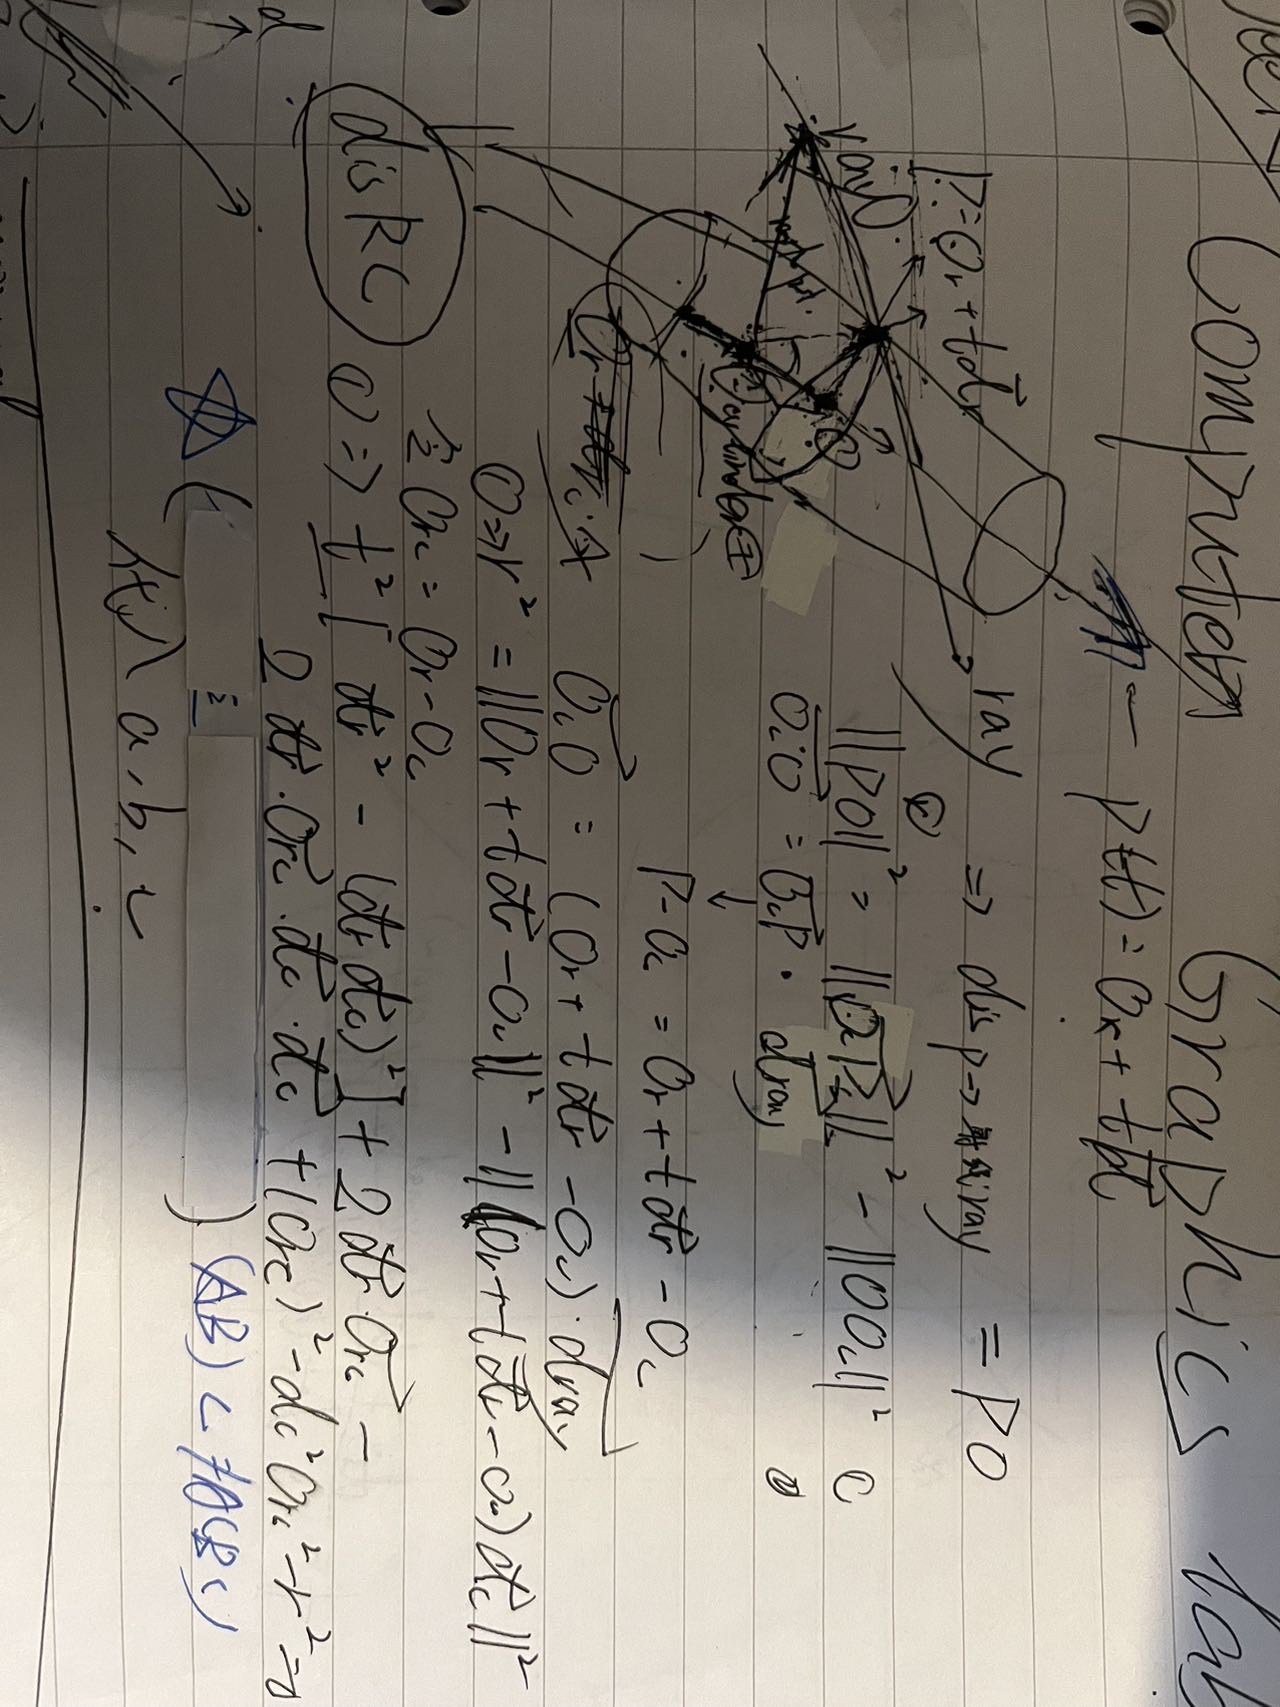 Computer Graphics lab
← P(t) = Or + td⃗
P = Or + td⃗r
ray ⇒ dis P→射线ray = PO
‖PO‖² = ‖OcP‖² - ‖OOc‖²
OcO = OcP · dray
↓
P - Oc = Or + td⃗r - Oc
OcO = (Or + td⃗r - Oc) · dray
① ⇒ r² = ‖Or + td⃗r - Oc‖² - ‖(Or + td⃗r - Oc) d⃗c‖²
令 Orc = Or - Oc
disRC
① ⇒ t² [ d⃗r² - (d⃗r d⃗c)²] + 2 d⃗r · Orc -
2 d⃗r · Orc · d⃗c · d⃗c + (Orc)² - dc² Orc² - r² = 0
d
☆ ( ) (AB) C ≠ A(BC)
代入 a, b, c